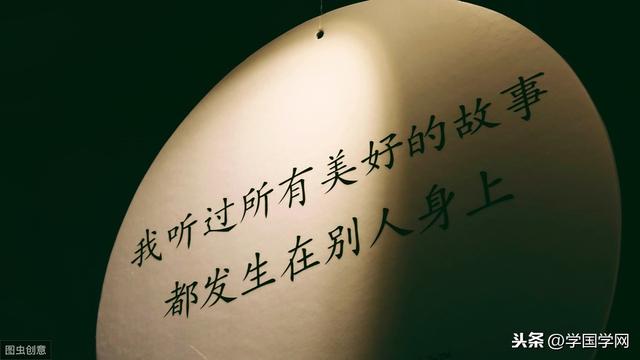 我听过所有美好的故事
都发生在别人身上
图虫创意
头条@学国学网